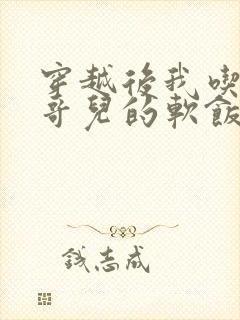 穿越後我喫
哥兒的軟飯
錢志成